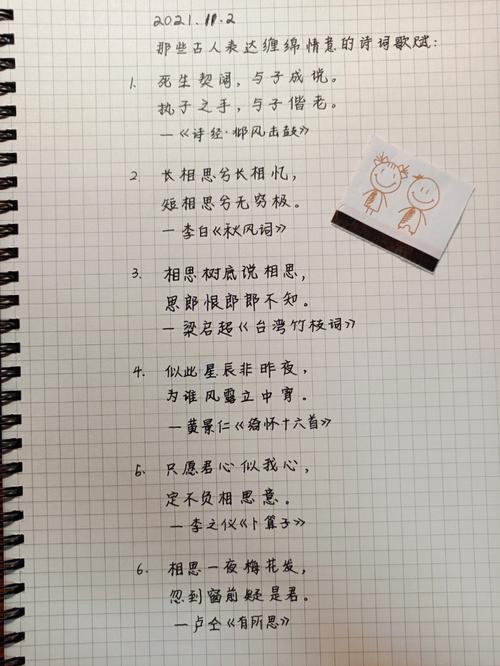 2021.11.2
那些古人表达缠绵情意的诗词歌赋:
1. 死生契阔，与子成说。
执子之手，与子偕老。
—《诗经·邶风击鼓》
2. 长相思兮长相忆，
短相思兮无穷极。
—李白《秋风词》
3. 相思树底说相思，
思郎恨郎郎不知。
—梁启超《台湾竹枝词》
4. 似此星辰非昨夜，
为谁风露立中宵。
—黄景仁《绮怀十六首》
5. 只愿君心似我心，
定不负相思意。
—李之仪《卜算子》
6. 相思一夜梅花发，
忽到窗前疑是君。
—卢仝《有所思》